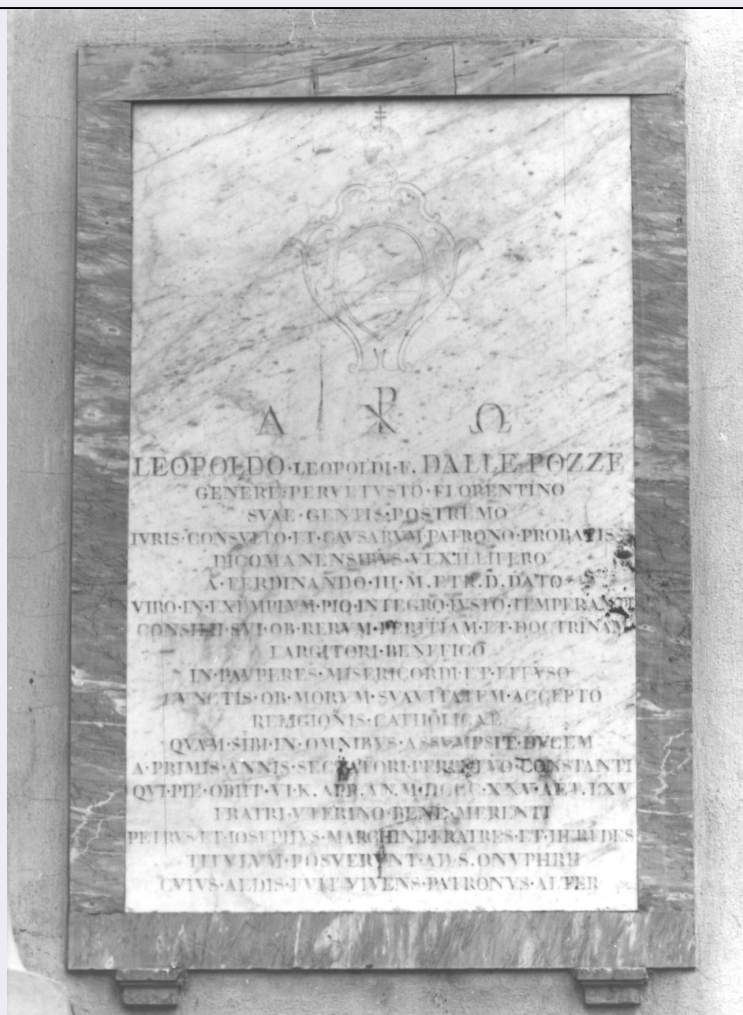 Α ☧ Ω
LEOPOLDO·LEOPOLDI·F·DALLE·POZZE
GENERE·PERVETVSTO·FLORENTINO
SVAE·GENTIS·POSTREMO
IVRIS·CONSVLTO·ET·CAVSARVM·PATRONO·PROBATISS
DICOMANENSIBVS·VEXILLIFERO
A·FERDINANDO·III·M·ETR·D·DATO
VIRO·IN·EXEMPLVM·PIO·INTEGRO·IVSTO·TEMPERANTI
CONSILII·SVI·OB·RERVM·PERITIAM·ET·DOCTRINAM
LARGITORI·BENEFICO
IN·PAVPERES·MISERICORDI·ET·EFFVSO
CVNCTIS·OB·MORVM·SVAVITATEM·ACCEPTO
RELIGIONIS·CATHOLICAE
QVAM·SIBI·IN·OMNIBVS·ASSVMPSIT·DVCEM
A·PRIMIS·ANNIS·SECTATORI·PERPETVO·CONSTANTI
QVI·PIE·OBIIT·VI·K·APR·AN·M·DCCC·XXV·AET·LXV
FRATRI·VTERINO·BENE·MERENTI
PETRVS·ET·IOSEPHVS·MARCHINII·FRATRES·ET·HEREDES
TITVLVM·POSVERVNT·AD·S·ONVPHRII
CVIVS·AEDIS·FVIT·VIVENS·PATRONVS·ALTER